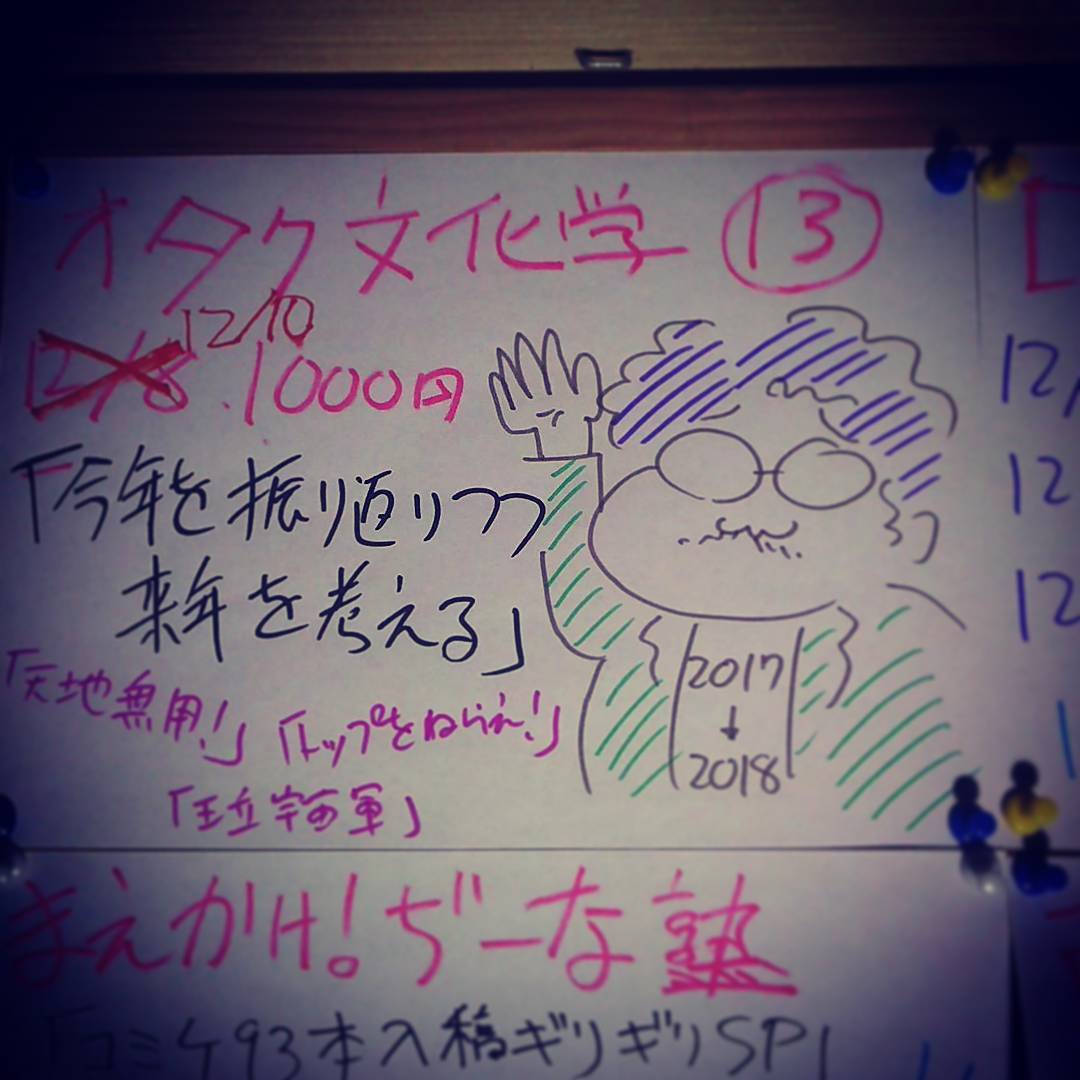 オタク文化学 ⑬
12/8 12/10 .1000円
「今年を振り返りつつ
来年を考える」
「天地無用!」「トップをねらえ!」
「王立宇宙軍」
2017
↓
2018
まえかけ!ぢーな塾
「コミケ93本入稿ギリギリSP!
12/
12
12